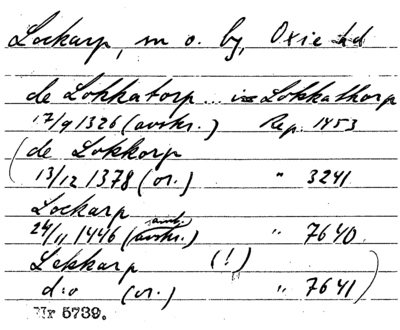 Lockarp, sn o. by, Oxie hd
de Lokkatorp ... in Lokkathorp
17/9 1326 (avskr.) Rep. 1453
(de Lokkorp
13/12 1378 (or.) " 3241
Lockarp
24/11 1446 (avskr.) " 7640.
Lekkarp (!)
d:o (or.) " 7641)
Nr 5739.